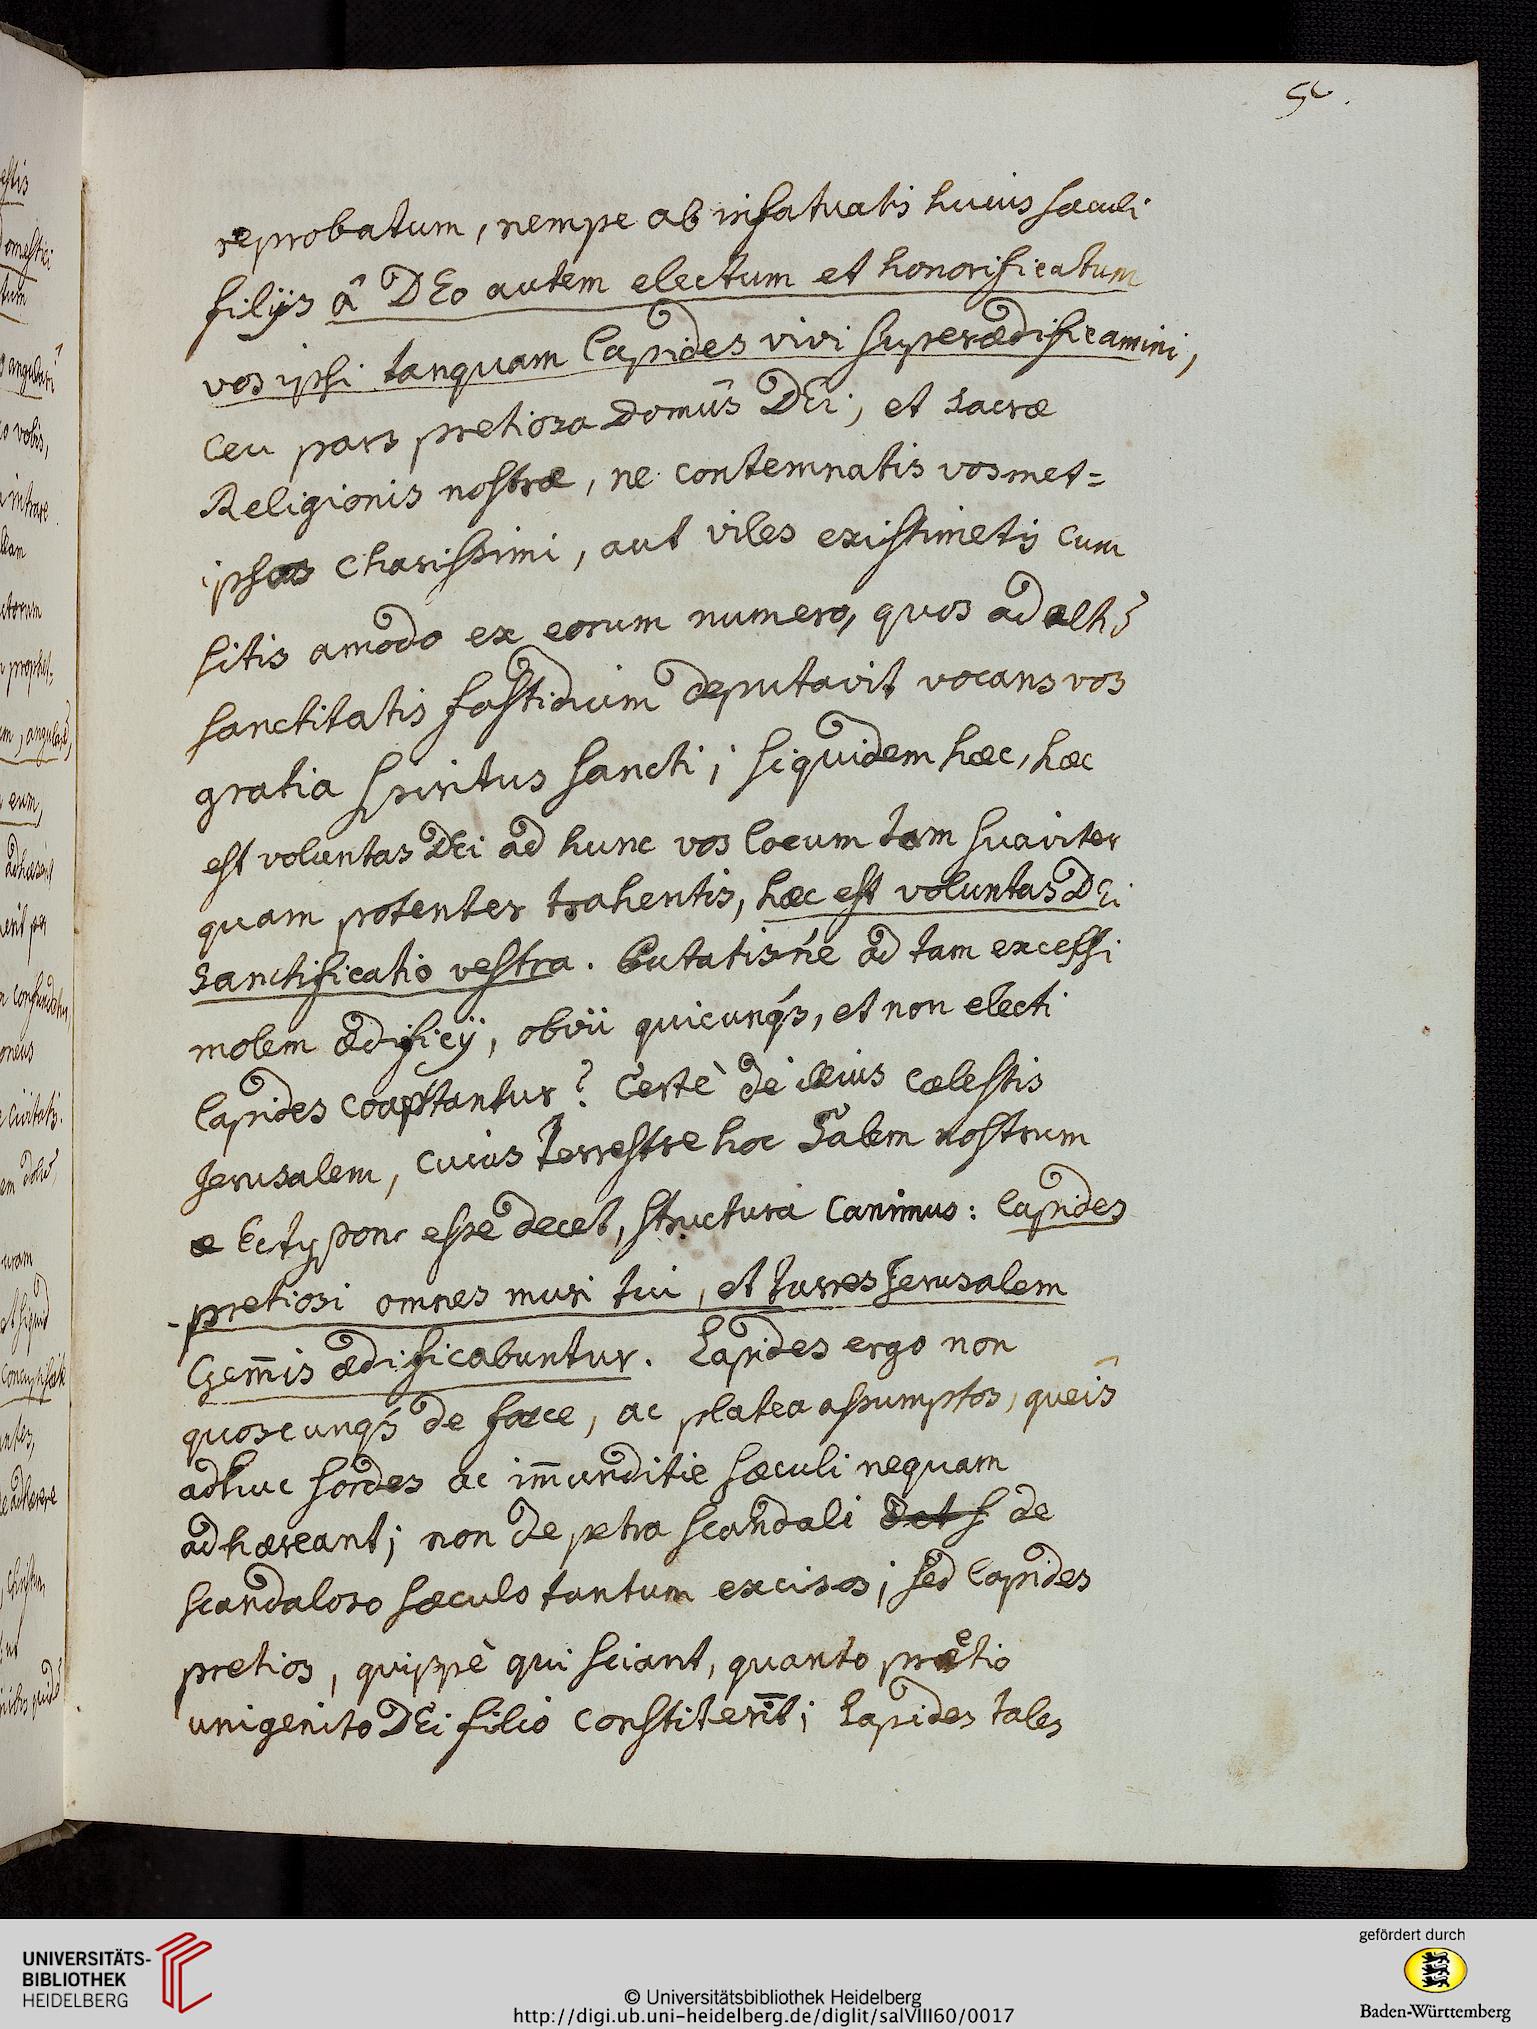 reprobatum, nempe ab infatuatis huius sæculi
filijs â DEo autem electum et honorificatum
vos ipsi tanquam lapides vivi superædificamini,
ceu pars pretiosa domûs DEi, et sacræ
Religionis nostræ, ne contemnatis vosmet=
ipsos charissimi, aut viles existimetis cum
sitis amodo ex eorum numero, quos ad
sanctitatis fastidium deputavit vocans vos
gratia Spiritus Sancti; siquidem hæc, hæc
est voluntas DEi ad hunc vos locum tam suaviter
quam potenter trahentis, hæc est voluntas DEi
sanctificatio vestra. Putatisne ad tam excessi
molem ædificij, obvii quicunq́s, et non electi
lapides coaptantur? Certè de illius cælestis
Jerusalem, cuius terrestre hoc Salem nostrum
Ectypon esse decet, structura canimus: lapides
pretiosi omnes muri tui, et turres Jerusalem
Gem̄is ædificabuntur. Lapides ergo non
quoscunq́s de fæce, ac platea assumptos, queîs
adhuc sordes ac im̄unditie sæculi nequam
adhæreant; non de petra scandali de
scandaloso sæculo tantum excisos; sed lapides
pretios, quippè qui sciant, quanto pretio
unigenito DEi filio constiterīt; Lapides tales
estis
domestici
tum
angulari
vobis,
intrare
ctorum
eum,
adhærent
civitatis.
uram
et siquid
adhærere
UNIVERSITÄTS-
BIBLIOTHEK
HEIDELBERG
© Universitätsbibliothek Heidelberg
http://digi.ub.uni-heidelberg.de/diglit/salVIII60/0017
gefördert durch
Baden-Württemberg